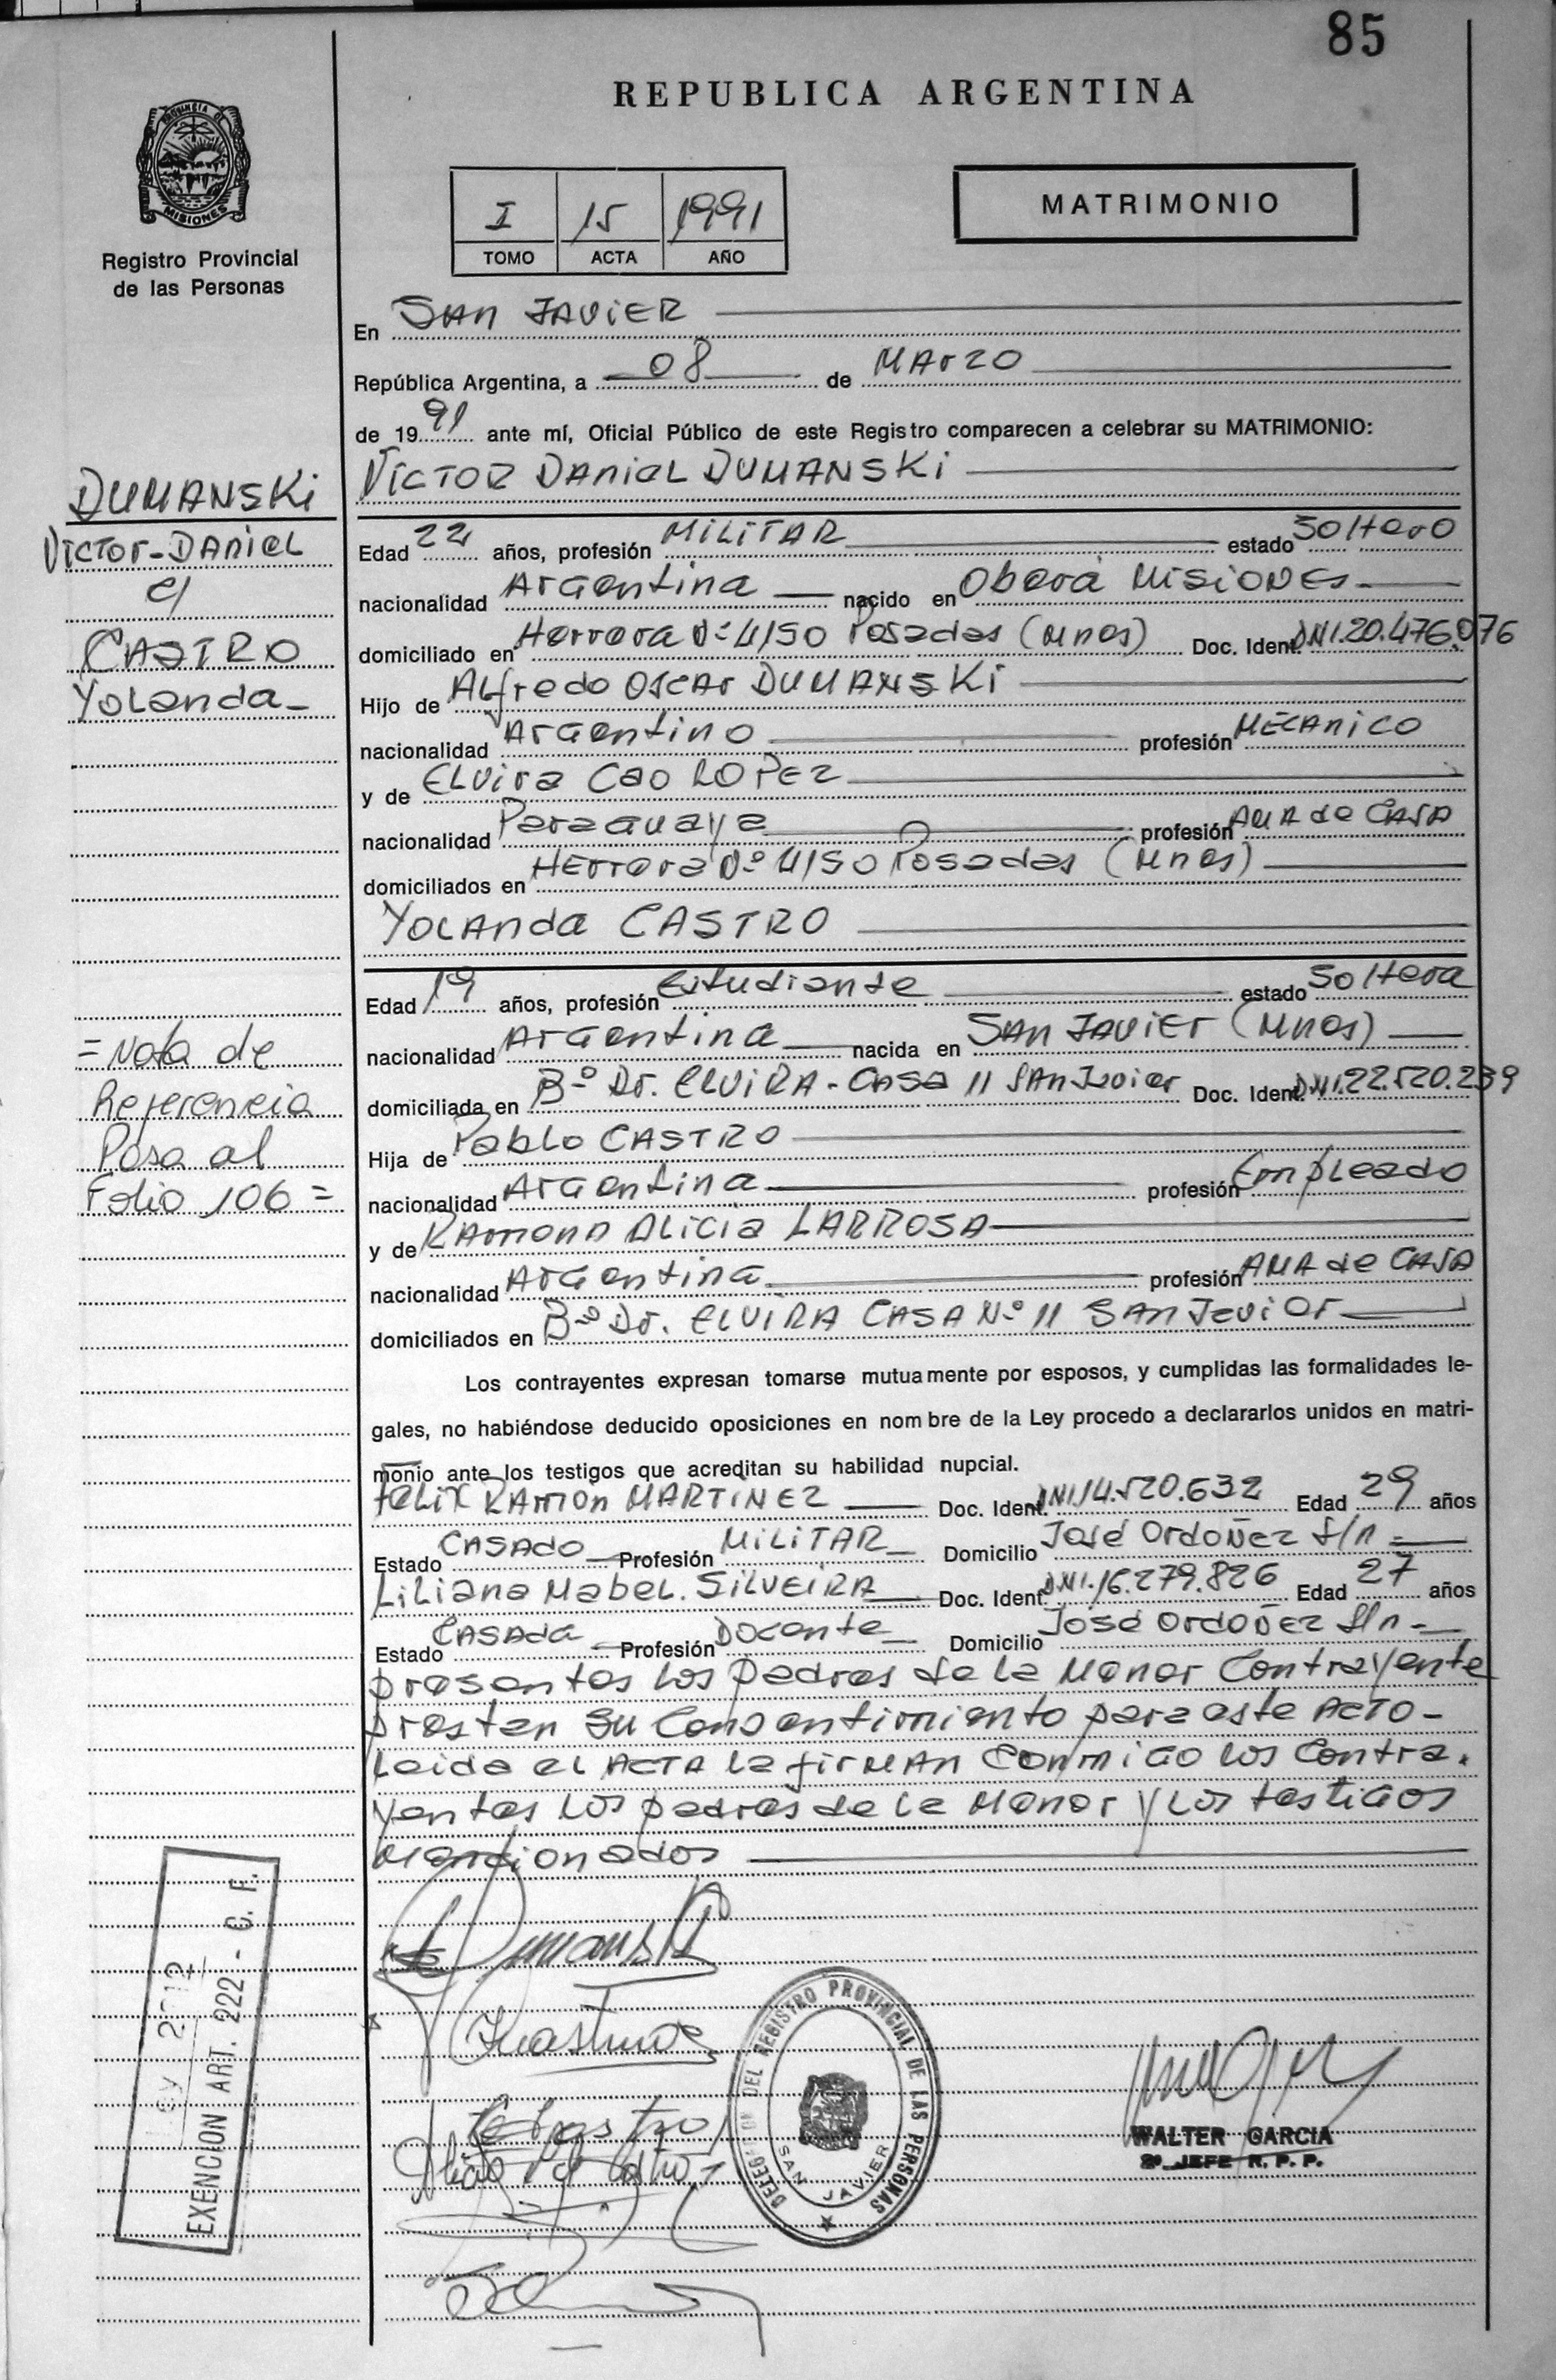 85
REPUBLICA ARGENTINA
PROVINCIA DE
MISIONES
Registro Provincial
de las Personas
I 15 1991
TOMO ACTA AÑO
MATRIMONIO
En SAN JAVIER
República Argentina, a 08 de MArzo
de 1991 ante mí, Oficial Público de este Registro comparecen a celebrar su MATRIMONIO:
VICTOR DANIEL DUMANSKI
DUMANSKI
VICTOR-DANIEL
c/
CASTRO
Yolanda-
Edad 22 años, profesión MILITAR estado Soltero
nacionalidad Argentina nacido en Oberá MISIONES
domiciliado en Herrera Nº 4150 Posadas (Mnes) Doc. Ident. DNI.20.476.076
Hijo de Alfredo OSCAr DUMANSKI
nacionalidad Argentino profesión MECANICO
y de ELVira Cao LOPEZ
nacionalidad Paraguaya profesión AMA de CASA
domiciliados en HErrera Nº 4150 Posadas (Mnes)
YOLANda CASTRO
Edad 19 años, profesión Estudiante estado Soltera
nacionalidad Argentina nacida en SAN JAVIER (Mnes)
domiciliada en Bº Dr. ELVIRA - CASA 11 SAN Javier Doc. Ident. DNI.22.520.239
Hija de Pablo CASTRO
nacionalidad Argentina profesión Empleado
y de RAMONA ALICIA LARROSA
nacionalidad Argentina profesión AMA de CASA
domiciliados en Bº Dr. ELVIRA CASA Nº 11 SAN Javier
= Nota de
Referencia
Pasa al
Folio 106 =
Los contrayentes expresan tomarse mutuamente por esposos, y cumplidas las formalidades le-
gales, no habiéndose deducido oposiciones en nombre de la Ley procedo a declararlos unidos en matri-
monio ante los testigos que acreditan su habilidad nupcial.
FELIX RAMON MARTINEZ Doc. Ident. DNI.14.520.632 Edad 29 años
Estado CASADO Profesión MILITAR Domicilio José Ordoñez S/n
LiLiana Mabel. SILVEIRA Doc. Ident. DNI.16.279.826 Edad 27 años
Estado CASADA Profesión Docente Domicilio José Ordoñez S/n
presentes los padres de la Menor Contrayente
prestan su Consentimiento para este ACTO-
Leida el ACTA la firMAN Conmigo los Contra.
yentes los padres de la Menor y los testigos
Mencionados
Dumanski
Ley 2012
EXENCION ART. 222 - C. F.
DELEGACION DEL REGISTRO PROVINCIAL DE LAS PERSONAS
SAN JAVIER
WALTER GARCIA
2º JEFE R. P. P.